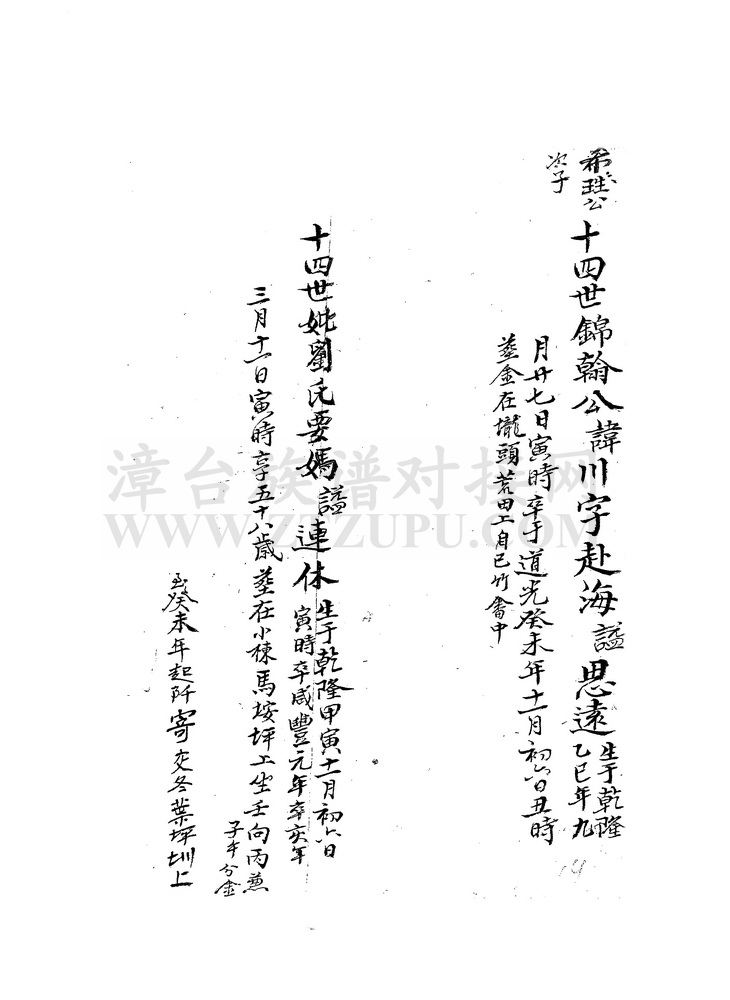 希珄公
次子
十四世錦翰公諱川字赴海謚思遠生于乾隆
乙巳年九
月廿七日寅時卒于道光癸未年十一月初六日丑時
墓金在壠頭荒田工自己竹畬中
十四世妣劉氏要媽謚連休生于乾隆甲寅十一月初六日
寅時卒咸豐元年辛亥年
三月十一日寅時享五十八歲墓在小楝馬垵坪上坐壬向丙兼
子午分金
癸未年起阡寄在冬葉坪圳上
漳台族谱对接网
WWW.ZTZUPU.COM
14